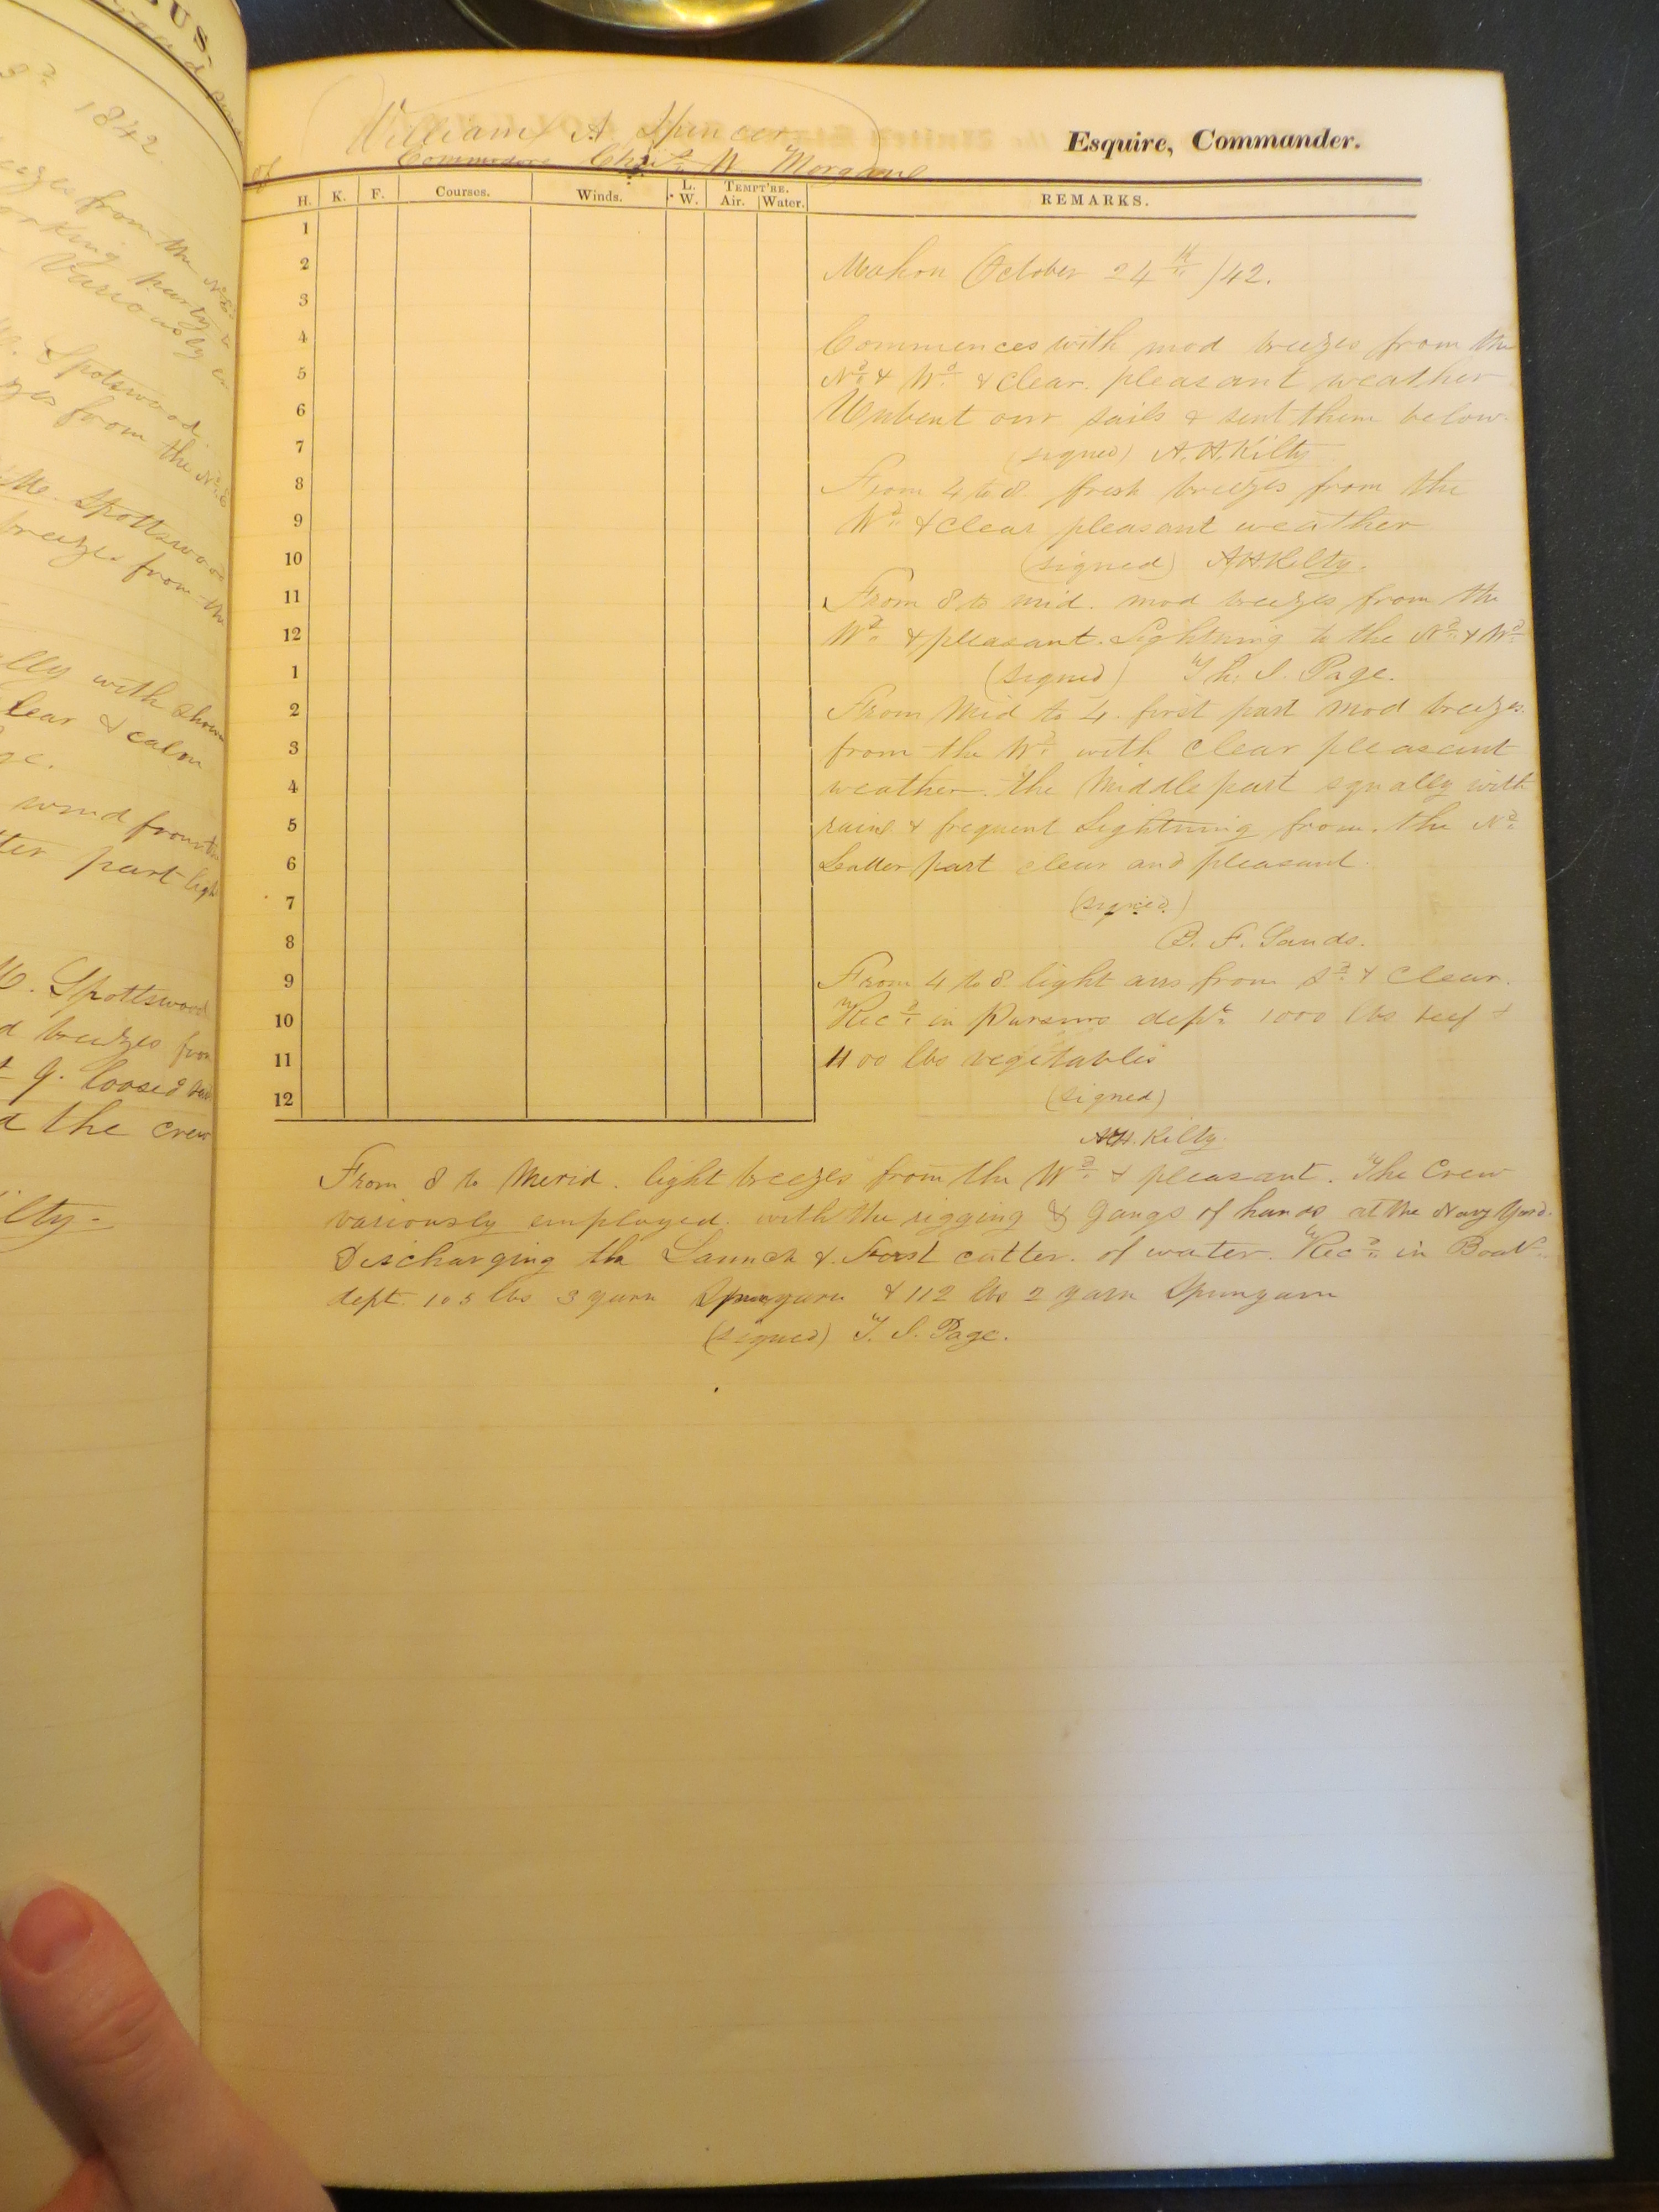 US
1842.
eezes from the Nd & E
orking party
Variously
M. Spotswood.
zes from the Nd & E
M. Spottswood
breezes from the
lly with show
lear & calm
ge.
wind from the
ter part ligh
M. Spottswood
d breezes from
9. loosed sai
d the crew
ilty.
William A Spencer Esquire, Commander.
of Commodore W Morgans
H. K. F. Courses. Winds. L. W. TEMPT'RE. Air. Water. REMARKS.
1
2 Mahon October 24th /42.
3
4 Commences with mod breezes from the
5 Nd & Wd & clear. pleasant weather
6 Unbent our sails & sent them below.
7 (signed) A. H. Kilty
8 From 4 to 8 fresh breezes from the
9 Wd & clear pleasant weather
10 (signed) A H Kilty.
11 From 8 to mid. mod breezes from the
12 Wd & pleasant. Lightning to the Nd & Wd
1 (signed) Th. J. Page.
2 From Mid to 4. first part mod breezes
3 from the Wd with clear pleasant
4 weather. the Middle part squally with
5 rain & frequent Lightning from the Nd
6 Latter part clear and pleasant.
7 (signed)
8 B. F. Sands.
9 From 4 to 8 light airs from Sd & Clear.
10 Recd in Pursers dept 1000 lbs beef &
11 400 lbs vegetables
12 (signed)
A H. Kilty.
From 8 to Merid. light breezes from the Wd & pleasant. The Crew
variously employed. with the rigging & gangs of hands at the Navy Yard.
Discharging the Launch & First cutter. of water. Recd in Boats
dept. 105 lbs 3 yarn Spunyarn & 112 lbs 2 yarn Spunyarn
(signed) T. J. Page.